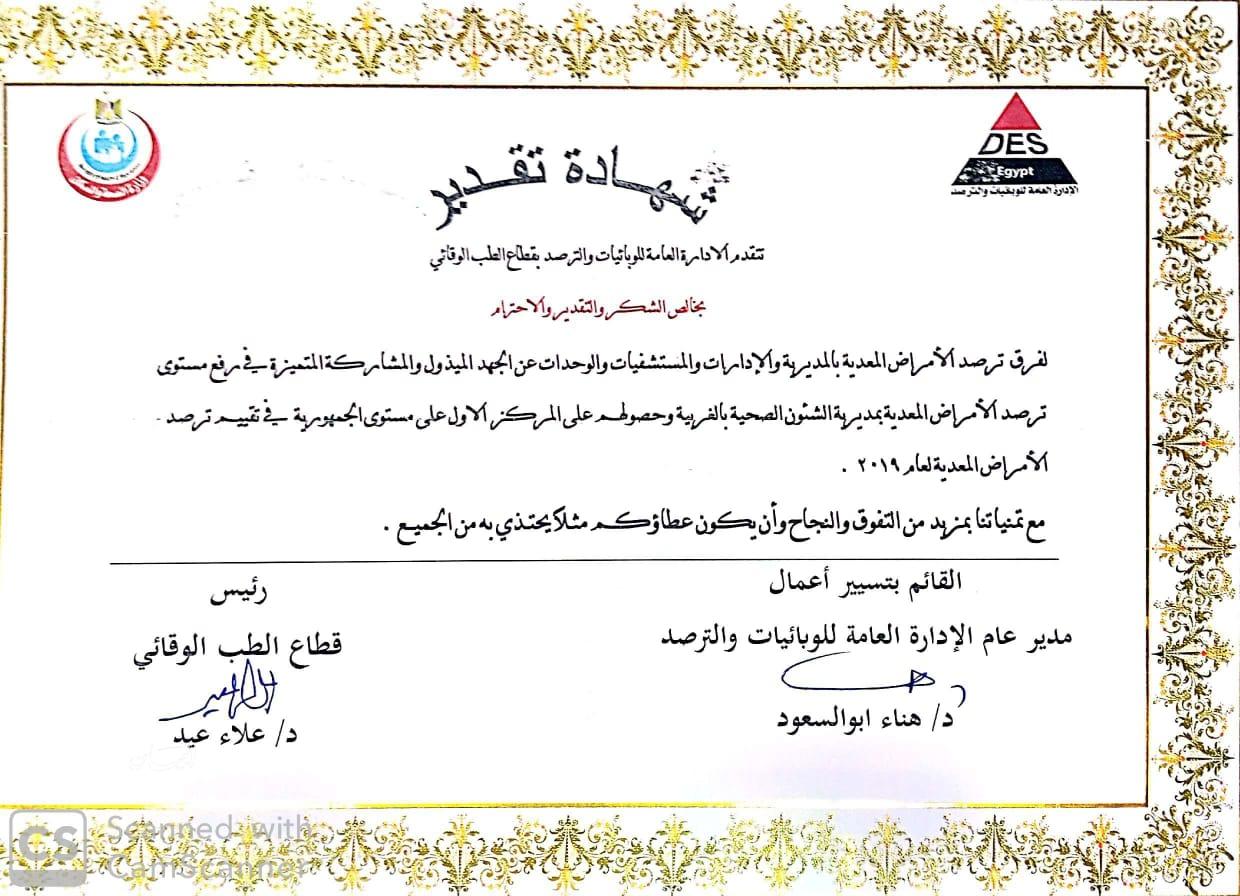 DES
Egypt
الإدارة العامة للوبائيات والترصد
شهادة تقدير
تتقدم الادارة العامة للوبائيات والترصد بقطاع الطب الوقائي
بخالص الشكر والتقدير والاحترام
لفرق ترصد الأمراض المعدية بالمديرية والإدارات والمستشفيات والوحدات عن الجهد المبذول والمشاركة المتميزة في رفع مستوى
ترصد الأمراض المعدية بمديرية الشئون الصحية بالغربية وحصولهم على المركز الاول على مستوى الجمهورية في تقييم ترصد
الأمراض المعدية لعام ٢٠١٩ .
مع تمنياتنا بمزيد من التفوق والنجاح وأن يكون عطاؤكم مثلاً يحتذي به من الجميع .
القائم بتسيير أعمال
مدير عام الإدارة العامة للوبائيات والترصد
د/ هناء ابوالسعود
رئيس
قطاع الطب الوقائي
د/ علاء عيد
CS Scanned with
CamScanner